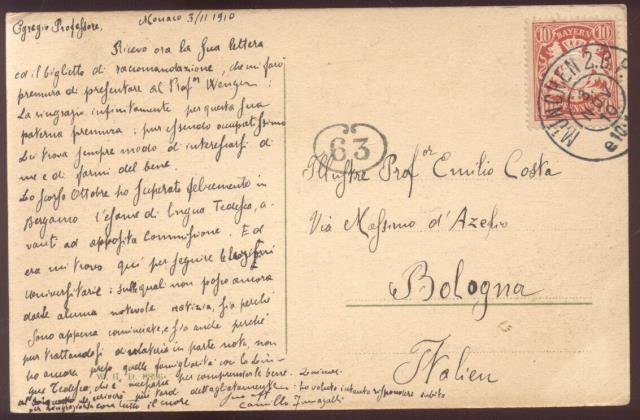 Monaco 3/11 1910
Egregio Professore,
Ricevo ora la Sua lettera
ed il biglietto di raccomandazione, che mi farò
premura di presentare al Prof.or Wenger.
La ringrazio infinitamente per questa Sua
paterna premura: pur essendo occupatissimo
Lei trova sempre modo di interessarsi di
me e di farmi del bene.
Lo scorso Ottobre ho superato felicemente in
Bergamo l'esame di lingua Tedesca, a-
vanti ad apposita Commissione. Ed
ora mi trovo qui per seguire le lezioni
universitarie: sulle quali non posso ancora
darle alcuna notevole notizia, sia perchè
sono appena cominciate, e sia anche perchè
pur trattandosi di materia in parte nota, non
ho ancora preso quella famigliarità con la Lin-
gua Tedesca, che è necessaria per comprendere bene.
scriverò più tardi dettagliatamente: ho voluto intanto rispondere subito
per ringraziarla con tutto il cuore
Suo
Camillo Fumagalli
BAYERN
10 10
PFENNIG
MÜNCHEN 2. B.P.
63
Illustre Prof.or Emilio Costa
Via Massimo d'Azeglio
Bologna
Italien